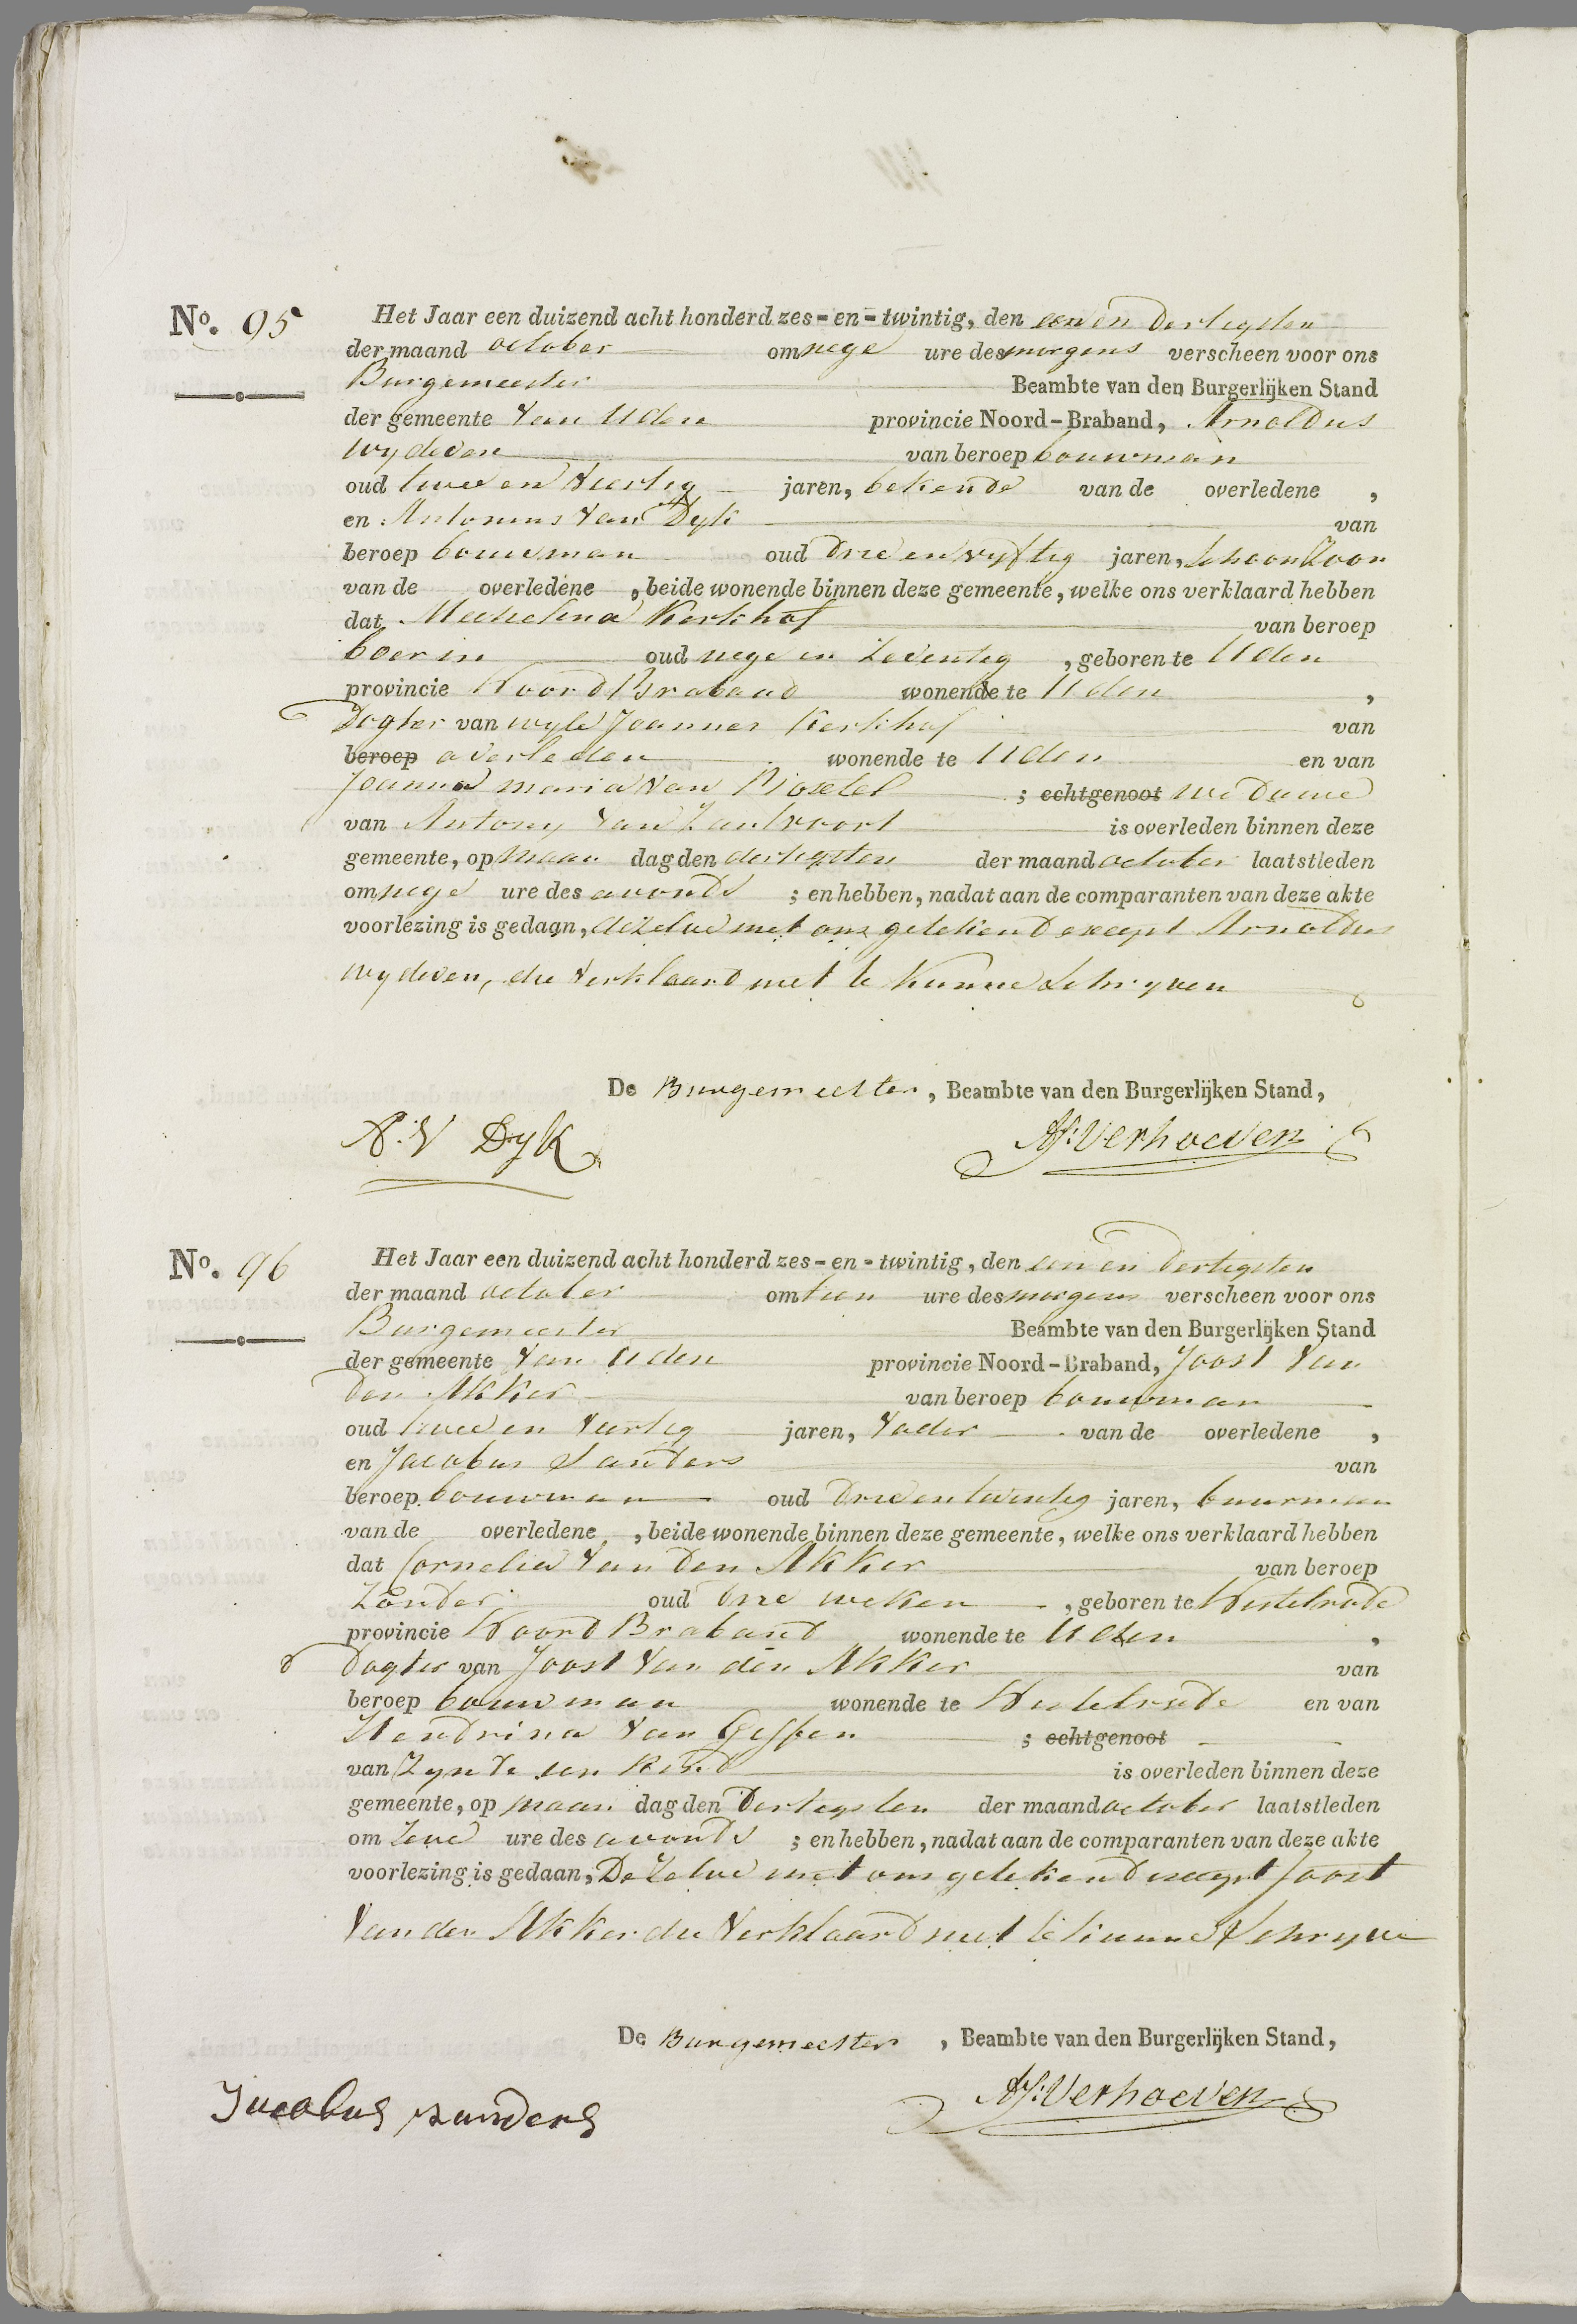 No. 95 Het Jaar een duizend acht honderd zes-en-twintig, den een en dertigsten
der maand october om nege ure des morgens verscheen voor ons
Burgemeester Beambte van den Burgerlijken Stand
der gemeente van Uden provincie Noord-Braband, Arnoldus
wydeven van beroep bouwman
oud twee en veertig jaren, bekende van de overledene ,
en Antonius van Dyk van
beroep bouwman oud drie en vyftig jaren, schoonzoon
van de overledene , beide wonende binnen deze gemeente, welke ons verklaard hebben
dat Mechelina Kerkhof van beroep
boerin oud nege en zeventig , geboren te Uden
provincie Noord Braband wonende te Uden ,
Dogter van wyle Joannes Kerkhof van
beroep overleden wonende te Uden en van
Joanna maria van Boxtel ; echtgenoot weduwe
van Antony van Zantvoort is overleden binnen deze
gemeente, op maan dag den dertigsten der maand october laatstleden
om nege ure des avonds ; en hebben, nadat aan de comparanten van deze akte
voorlezing is gedaan, dezelve met ons getekend except Arnoldus
wydeven, die verklaard niet te kunne schryven
De Burgemeester, Beambte van den Burgerlijken Stand,
A. V Dyk Verhoeven
No. 96 Het Jaar een duizend acht honderd zes-en-twintig, den een en dertigsten
der maand october om tien ure des morgens verscheen voor ons
Burgemeester Beambte van den Burgerlijken Stand
der gemeente van Uden provincie Noord-Braband, Joost van
den Akker van beroep bouwman
oud twee en veertig jaren, vader van de overledene ,
en Jacobus Sanders van
beroep bouwman oud drie en twintig jaren, buurman
van de overledene , beide wonende binnen deze gemeente, welke ons verklaard hebben
dat Cornelia van den Akker van beroep
Zonder oud drie weken , geboren te Nistelrode
provincie Noord Braband wonende te Uden ,
Dogter van Joost van den Akker van
beroep bouwman wonende te Nistelrode en van
Hendrina van Geffen ; echtgenoot
van Zynde een kind is overleden binnen deze
gemeente, op maan dag den Dertigsten der maand october laatstleden
om zeve ure des avonds ; en hebben, nadat aan de comparanten van deze akte
voorlezing is gedaan, Dezelve met ons getekend except Joost
van den Akker die verklaard niet te kunne schryve
De Burgemeester , Beambte van den Burgerlijken Stand,
Jacobus sanders Verhoeven